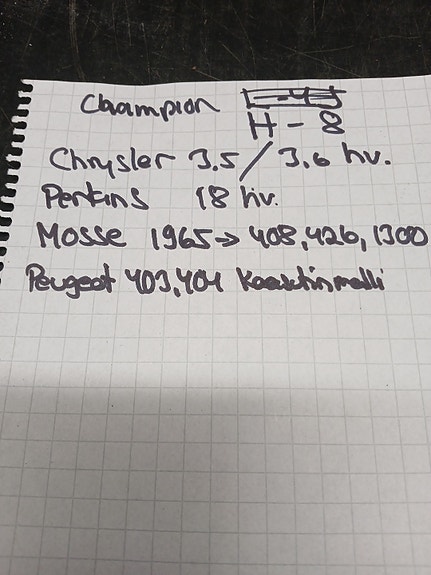 Champion
H-8
Chrysler 3.5 / 3.6 hv.
Perkins 18 hv.
Mosse 1965→ 408,426,1300
Peugeot 403,404